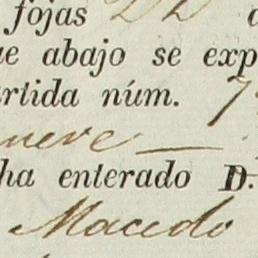 fojas 22
e abajo se exp
rtida núm. 7
nueve
ha enterado D.
Macedo